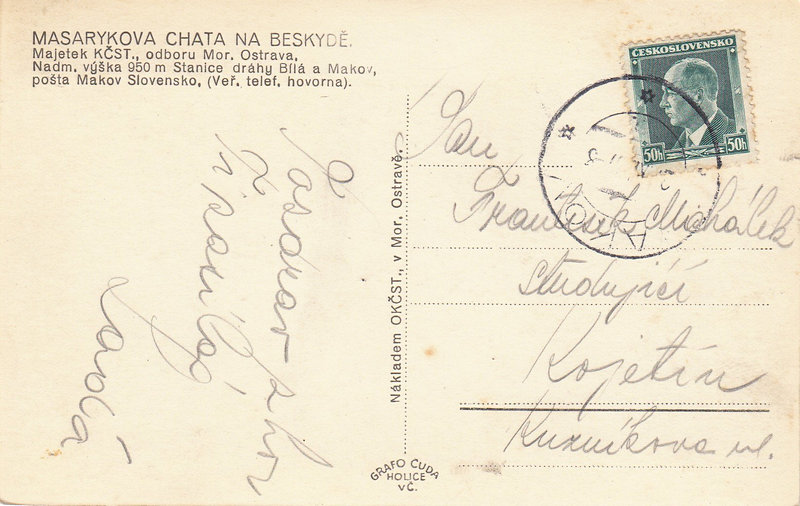 MASARYKOVA CHATA NA BESKYDĚ.
Majetek KČST., odboru Mor. Ostrava,
Nadm. výška 950 m Stanice dráhy Bílá a Makov,
pošta Makov Slovensko, (Veř. telef. hovorna).
Pozdrav z hor
Vám posílá
ČESKOSLOVENSKO
50h 50h
Pan
František Michálek
studující
Kojetín
Kuzníkova ul.
Nákladem OKČST., v Mor. Ostravě.
GRAFO ČUDA
HOLICE
V Č.